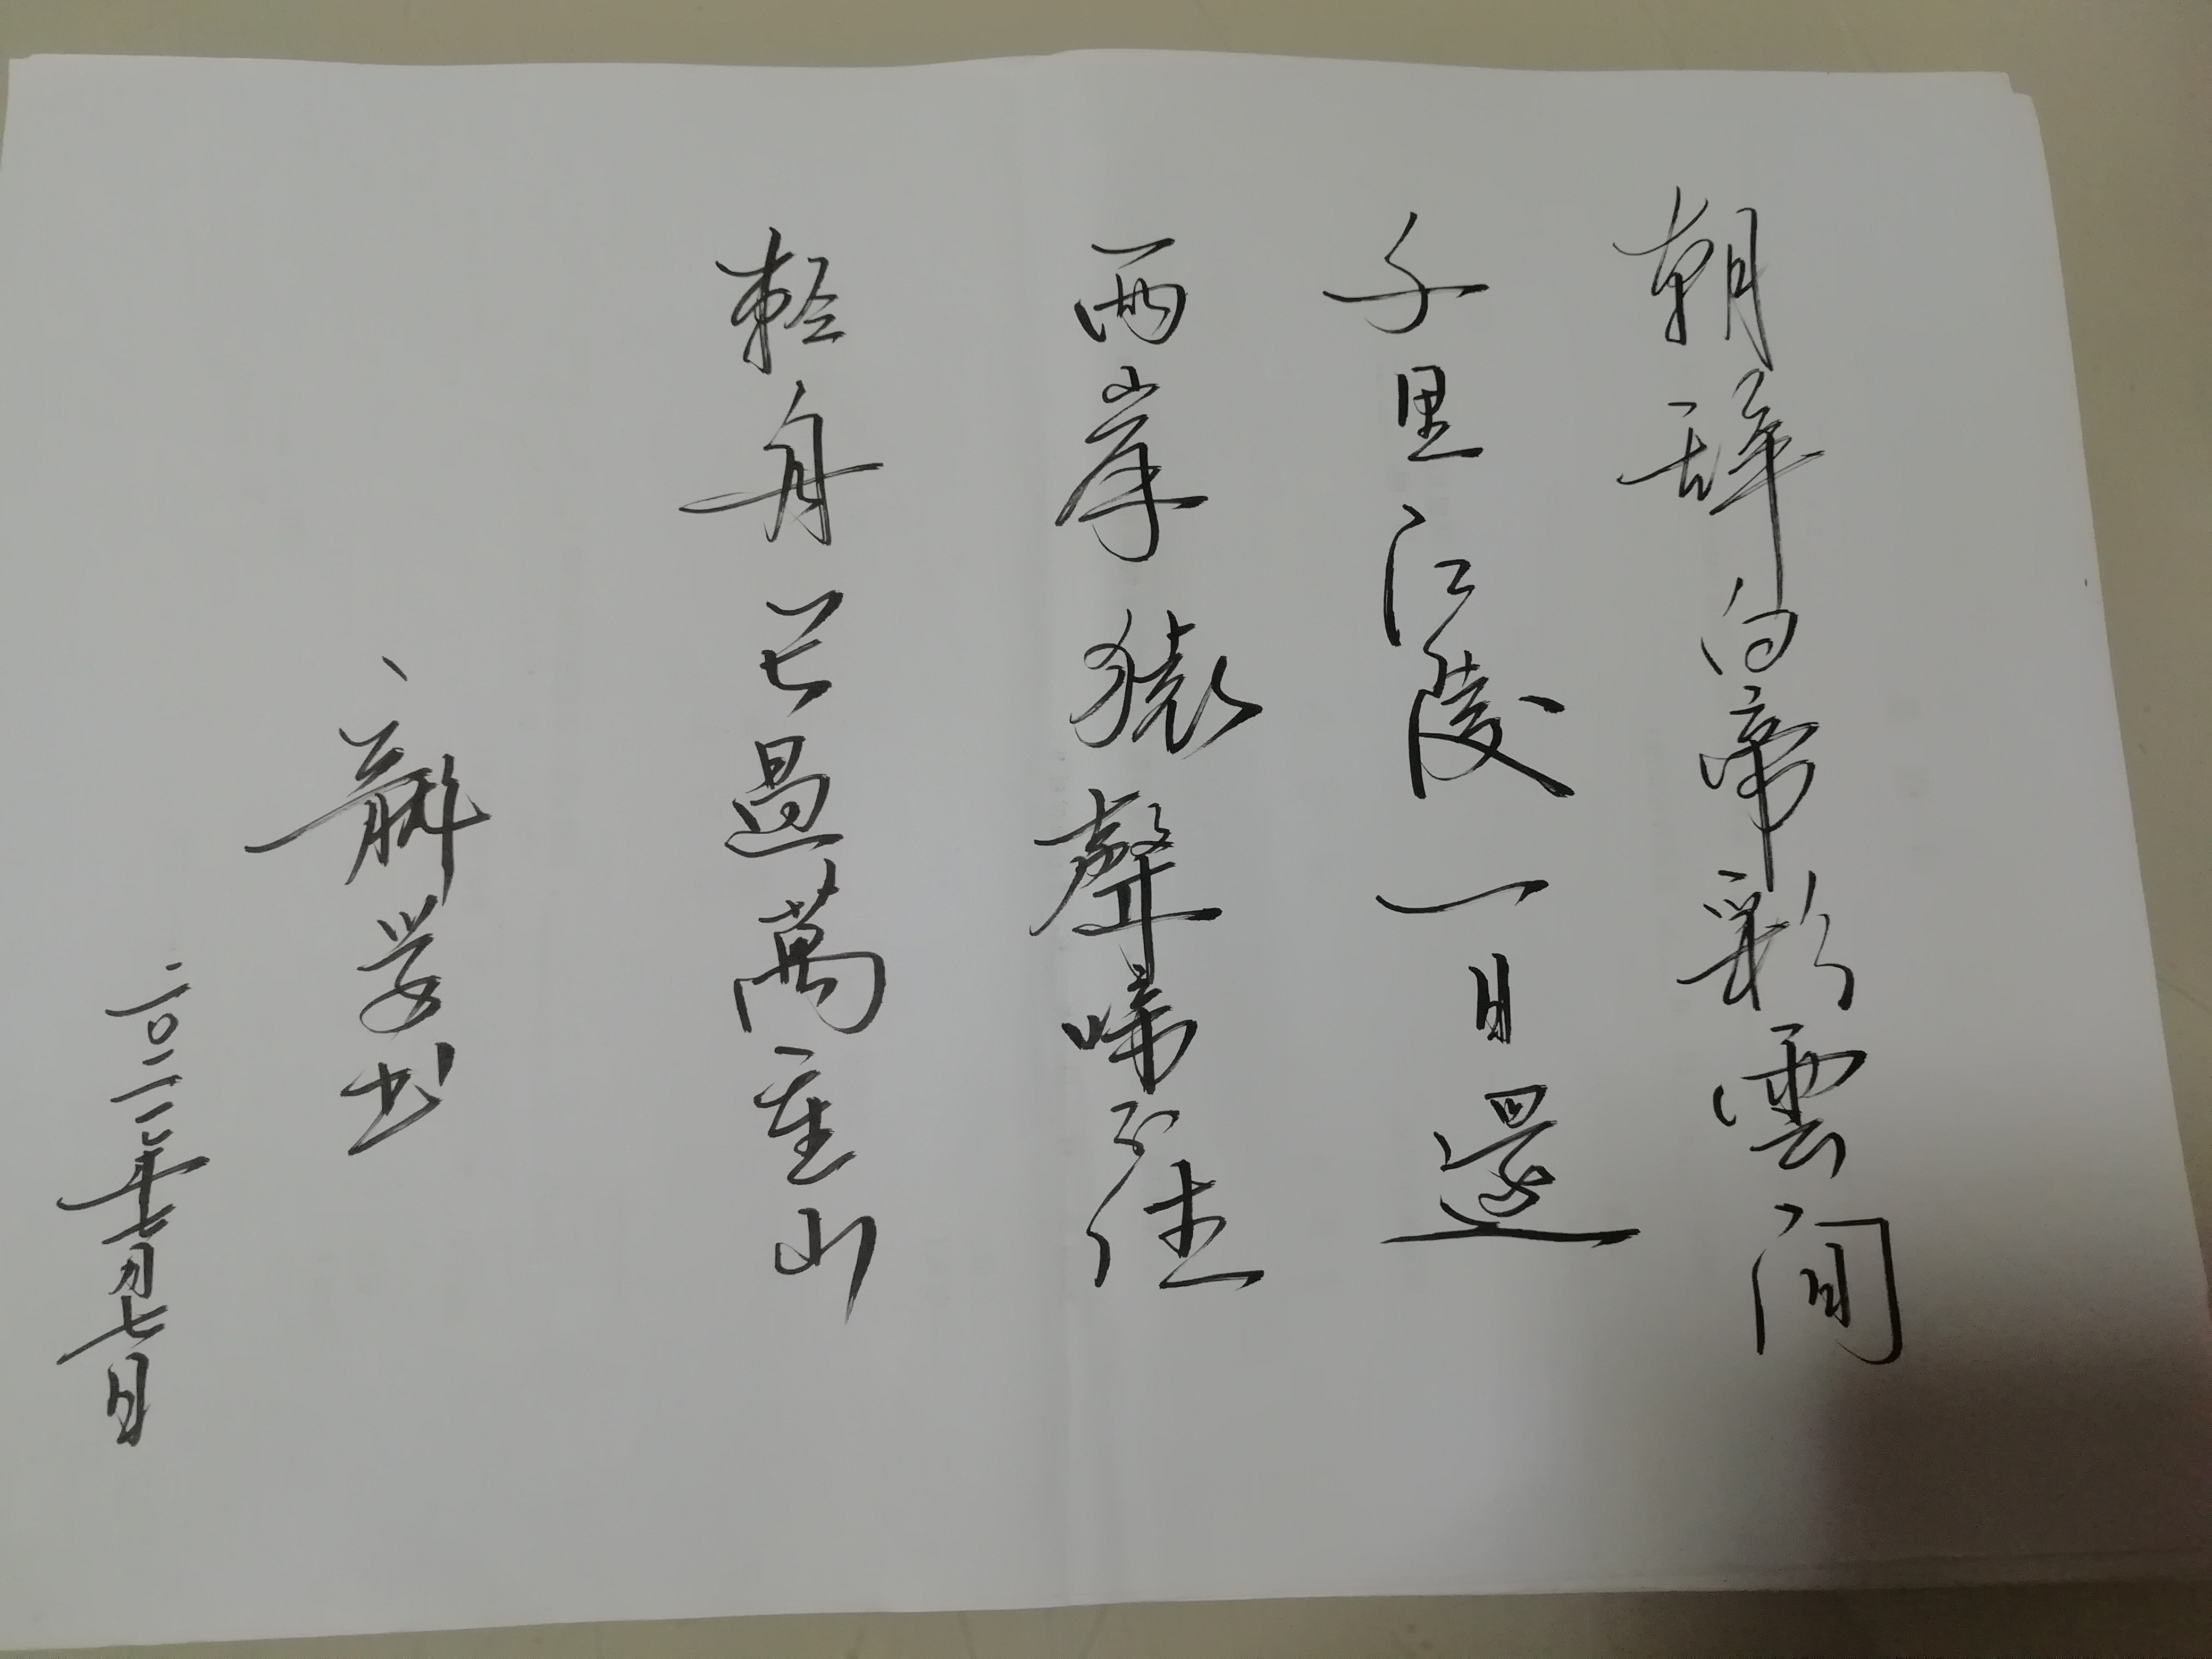 朝辞白帝彩雲间
千里江陵一日還
两岸猿聲啼不住
輕舟已過萬重山
书
二〇二二年七月七日